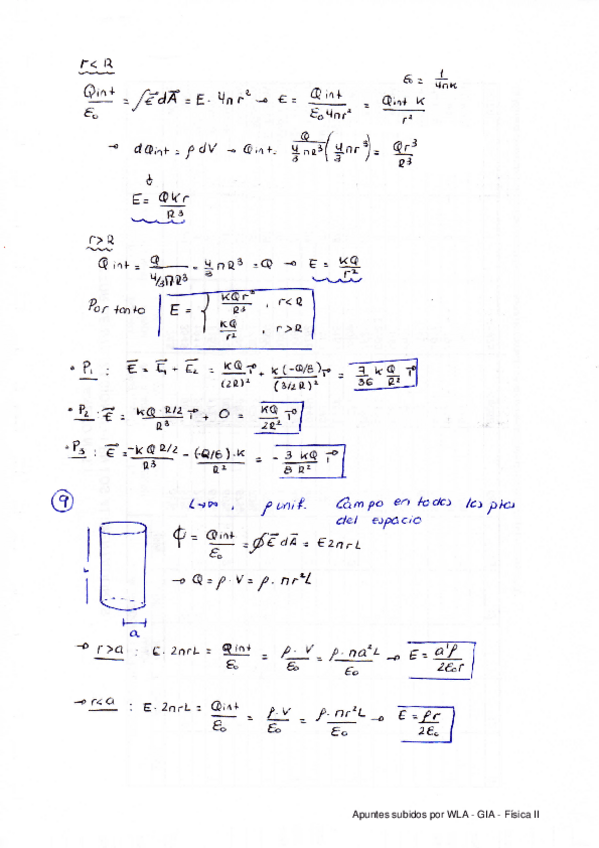 r<R
ε₀ = 1/4πK
Qint/ε₀ = ∫E⃗ dA⃗ = E · 4πr² → E = Qint/ε₀4πr² = Qint K/r²
→ dQint = ρ dV → Qint = Q/(4/3 πR³) (4/3 πr³) = Qr³/R³
↓
E = QKr/R³
r>R
Qint = Q/(4/3πR³) · 4/3 πR³ = Q → E = KQ/r²
Por tanto E = { KQr³/R³ , r<R
KQ/r² , r>R
• P₁ : E⃗ = E⃗₁ + E⃗₂ = KQ/(2R)² i⃗ + K(-Q/8)/(3/2R)² i⃗ = 7/36 KQ/R² i⃗
• P₂ : E⃗ = KQ·R/2/R³ i⃗ + 0 = KQ/2R² i⃗
• P₃ : E⃗ = -KQR/2/R³ - (-Q/8)·K/R² = -3/8 KQ/R² i⃗
9 L→∞ , ρ unif. Campo en todos los ptos
del espacio
Φ = Qint/ε₀ = ∮E⃗ dA⃗ = E2πrL
→ Q = ρ·V = ρ·πr²L
a
→ r>a : E·2πrL = Qint/ε₀ = ρ·V/ε₀ = ρ·πa²L/ε₀ → E = a²ρ/2ε₀r
→ r<a : E·2πrL = Qint/ε₀ = ρ·V/ε₀ = ρ·πr²L/ε₀ → E = ρr/2ε₀
Apuntes subidos por WLA - GIA - Física II